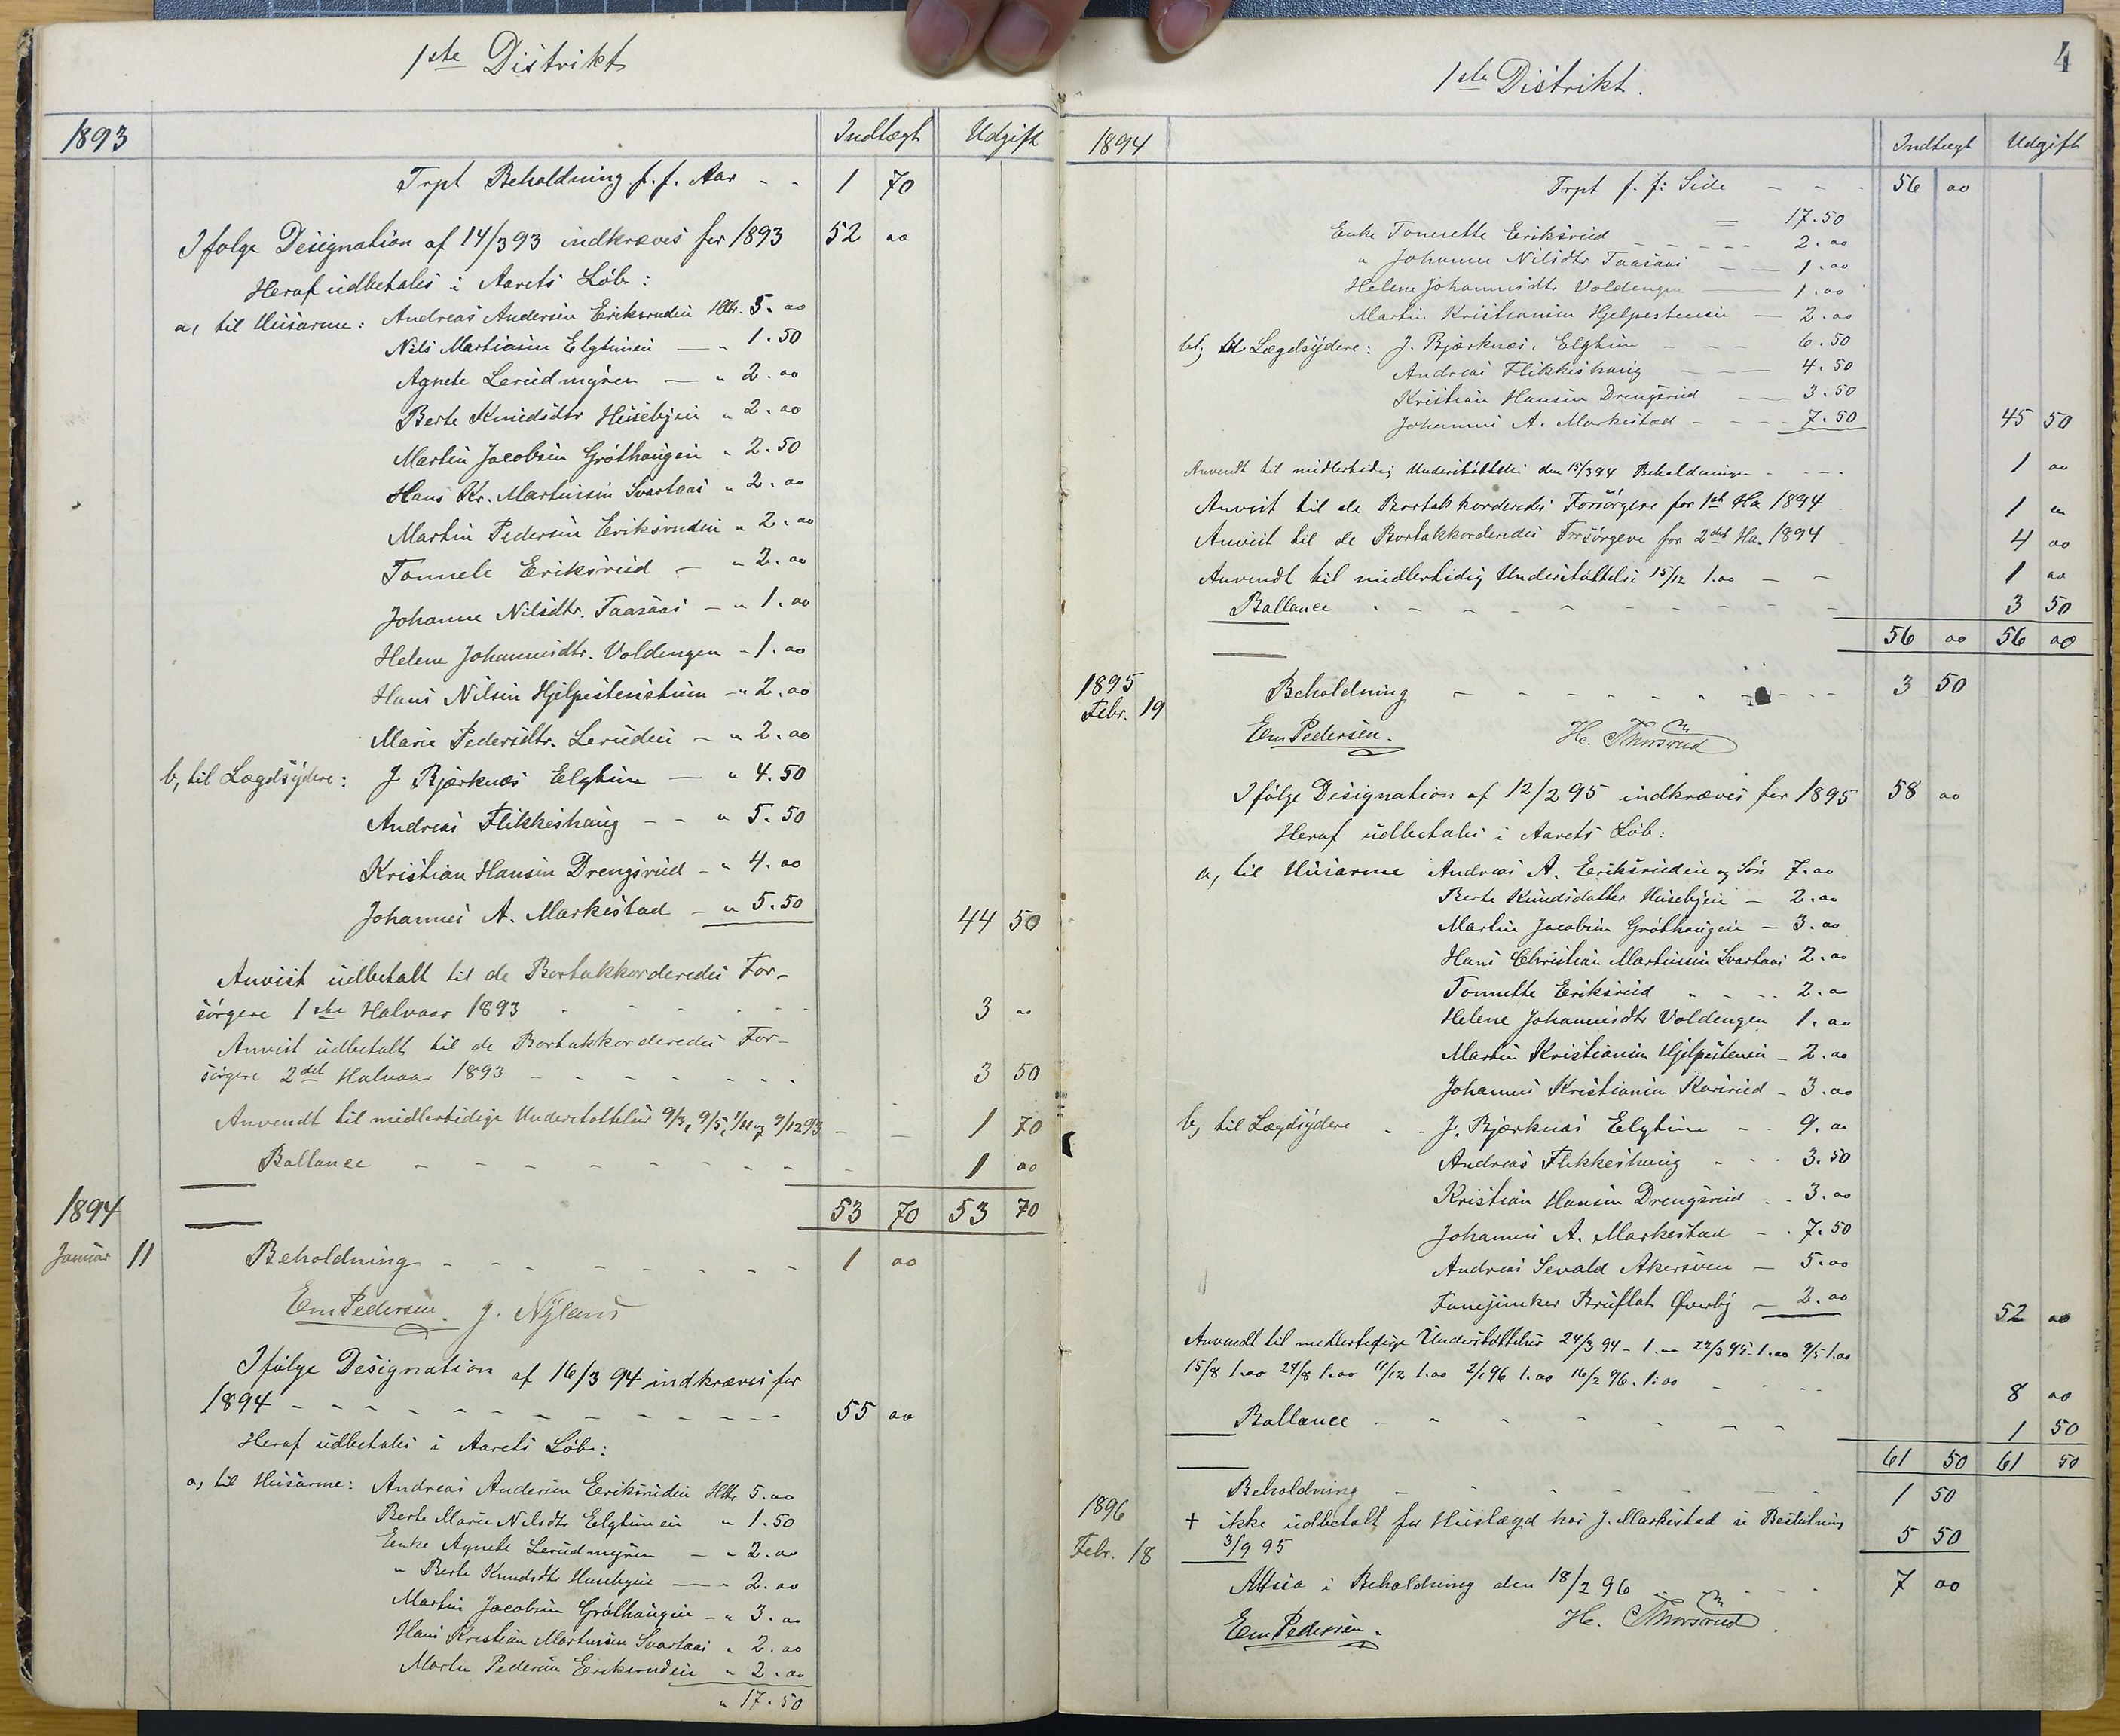 1ste Distrikt
1893 Indtægt Udgift
Trpt Beholdning f. f. Aar - - 1 70
Ifølge Designation af 14/3 93 indkræves for 1893 52 00
Heraf udbetales i Aarets Løb:
a, til Husarme: Andreas Andersen Eriksruden Hltr. 5.00
Nils Martiasen Elgtunen — " 1.50
Agnete Lerudmyren — " 2.00
Berte Knudsdtr Husebyen " 2.00
Martin Jacobsen Grøthaugen " 2.50
Hans Kr. Martinsen Svartaas " 2.00
Martin Pedersen Eriksruden " 2.00
Tonnete Eriksrud — " 2.00
Johanne Nilsdtr. Taasaas — " 1.00
Helene Johannesdtr. Voldengen - 1.00
Hans Nilsen Hjelpestenstuen — " 2.00
Marie Pedersdtr. Leruden — " 2.00
b, til Lægdsydere: J Bjærknæs Elgtun — " 4.50
Andreas Flikkeshaug - - " 5.50
Kristian Hansen Drengsrud - " 4.00
Johannes A. Markestad — " 5.50 44 50
Anvist udbetalt til de Bortakkorderedes For-
sørgere 1ste Halvaar 1893 3 00
Anvist udbetalt til de Bortakkorderedes For-
sørgere 2det Halvaar 1893 - - - - 3 50
Anvendt til midlertidige Understøttelser 9/3, 9/5, 1/11 og 9/12 93 - - 1 70
Ballance - - - - - - - 1 00
1894 53 70 53 70
Januar 11 Beholdning - - - - - - - 1 00
Em Pedersen. J. Nyland
Ifølge Designation af 16/3 94 indkræves for
1894 - - - - - - - - - 55 00
Heraf udbetales i Aarets Løb:
a, til Husarme: Andreas Andersen Eriksruden Hltr 5.00
Berte Marie Nilsdtr Elgtunen " 1.50
Enke Agnete Lerudmyren — " 2.00
" Berte Knudsdtr Husebyen — " 2.00
Martin Jacobsen Grøthaugen - " 3.00
Hans Kristian Martinsen Svartaas " 2.00
Martin Pedersen Eriksruden " 2.00
" 17.50
4
1ste Distrikt.
1894 Indtægt Udgift
Trpt f. f: Side - - - 56 00
= 17.50
Enke Tonnette Eriksrud - - - - 2.00
" Johanne Nilsdtr Taasaas — — 1.00
Helene Johannesdtr Voldengen — 1.00
Martin Kristiansen Hjelpestenen — 2.00
b, til Lægdsydere: J. Bjærknæs, Elgtun - - - 6.50
Andreas Flikkeshaug — — — 4.50
Kristian Hansen Drengsrud — — 3.50
Johannes A. Markestad - - - - 7.50 45 50
Anvendt til midlertidig Understøttelse den 15/3 94 Beholdningen - - - - 1 00
Anvist til de Bortakkorderedes Forsørgere for 1ste Ha 1894 1 00
Anvist til de Bortakkorderedes Forsørgere for 2det Ha. 1894 4 00
Anvendt til midlertidig Understøttelse 15/12 1.00 - - 1 00
Ballance - - - - - - - - 3 50
56 00 56 00
1895
Febr. 19 Beholdning - - - - - - - - 3 50
Em Pedersen. H. Thorsrud
Ifølge Designation af 12/2 95 indkræves for 1895 58 00
Heraf udbetales i Aarets Løb:
a, til Husarme Andreas A. Eriksruden og Søn 7.00
Berte Knudsdatter Husebyen — 2.00
Martin Jacobsen Grøthaugen — 3.00
Hans Christian Martinsen Svartaas 2.00
Tonnette Eriksrud - - - - 2.00
Helene Johannesdtr Voldengen 1.00
Martin Kristiansen Hjelpestenen - 2.00
Johannes Kristiansen Karsrud - 3.00
b, til Lægdsydere - - J. Bjærknæs Elgtun - - 9.00
Andreas Flikkeshaug - - - 3.50
Kristian Hansen Drengsrud - - 3.00
Johannes A. Markestad - - 7.50
Andreas Sevald Akersveen — 5.00
Fanejunker Bruflat Øverby — 2.00 52 00
Anvendt til midlertidige Understøttelser 24/3 94 - 1.00 22/3 95 - 1.00 9/5 1.00
15/8 1.00 24/8 1.00 11/12 1.00 2/1 96 1.00 16/2 96. 1.00 - - - - 8 00
Ballance - - - - - - - 1 50
61 50 61 50
Beholdning - - - - - - 1 50
1896 + ikke udbetalt for Huslægd hos J. Markestad se Beslutning
Febr. 18 3/9 95 5 50
Altsaa i Beholdning den 18/2 96 - - - - 7 00
Em Pedersen. H. Thorsrud.